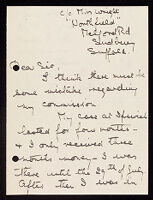 c/o Mrs Wright
"Northfield"
Melford Rd
Sudbury
Suffolk.
Dear Sir,
I think there must be
some mistake regarding
my commission
My case at Ipswich
lasted for four weeks -
& I only received three
months money - I was
there until the 29th of July
After then I was in